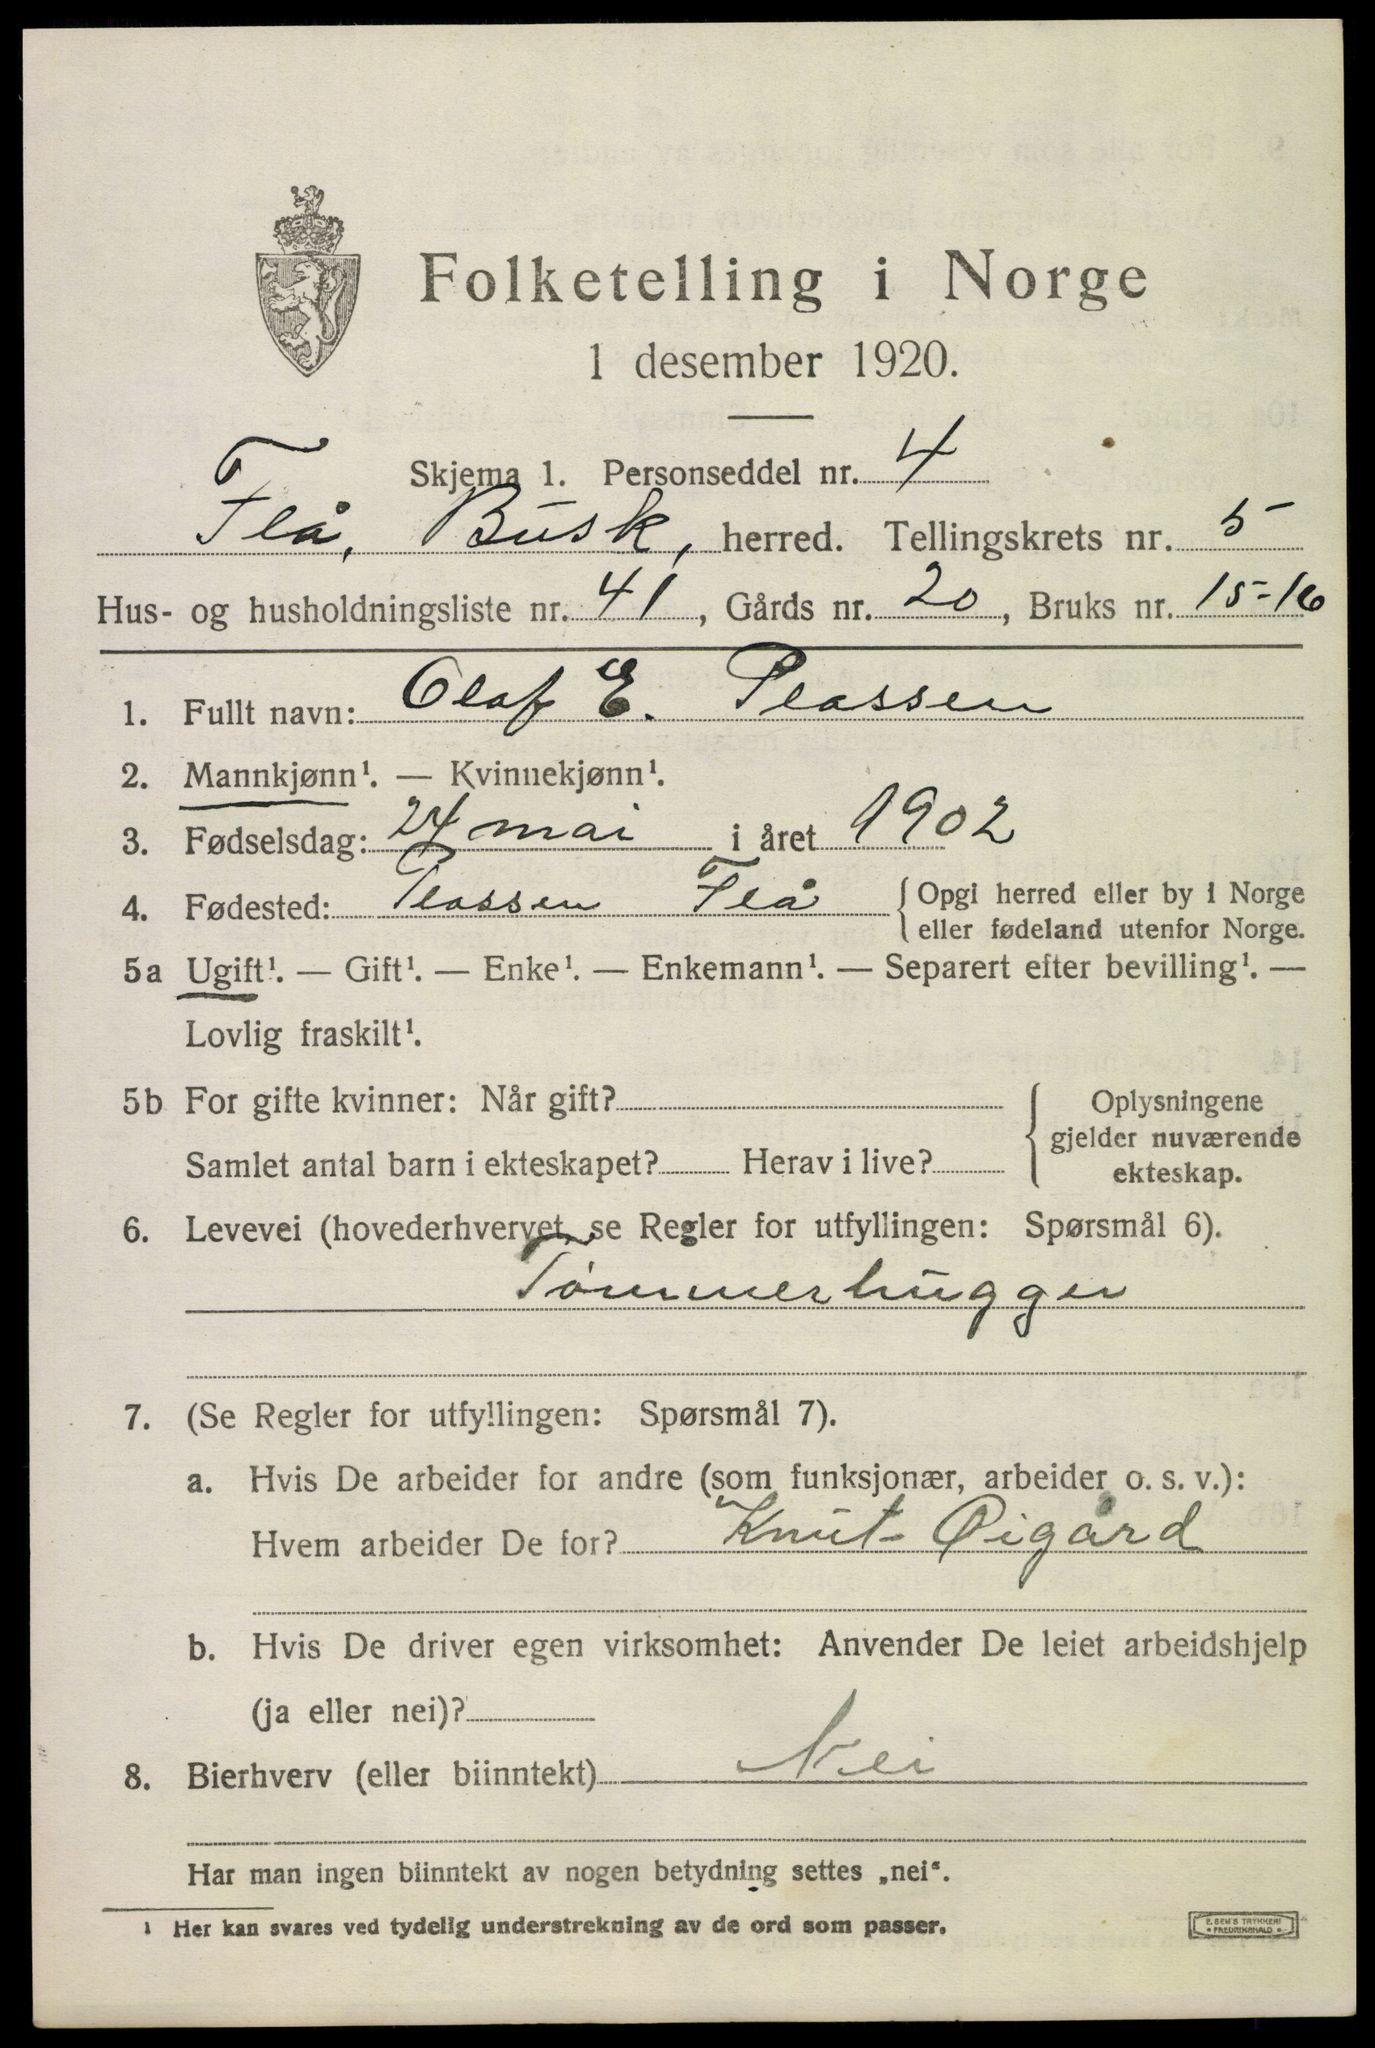 Folketelling i Norge
1 desember 1920.
Skjema 1. Personseddel nr. 4
Flå, Busk, herred. Tellingskrets nr. 5
Hus- og husholdningsliste nr. 41, Gårds nr. 20, Bruks nr. 15-16
1. Fullt navn: Olaf E. Plassen
2. Mannkjønn¹. — Kvinnekjønn¹.
3. Fødselsdag: 24 mai i året 1902
4. Fødested: Plassen Flå { Opgi herred eller by i Norge
eller fødeland utenfor Norge.
5a Ugift¹. — Gift¹. — Enke¹. — Enkemann¹. — Separert efter bevilling¹. —
Lovlig fraskilt¹.
5b For gifte kvinner: Når gift? { Oplysningene
gjelder nuværende
Samlet antal barn i ekteskapet? Herav i live? ekteskap.
6. Levevei (hovederhvervet, se Regler for utfyllingen: Spørsmål 6).
Tømmerhugger
7. (Se Regler for utfyllingen: Spørsmål 7).
a. Hvis De arbeider for andre (som funksjonær, arbeider o. s. v.):
Hvem arbeider De for? Knut Øigård
b. Hvis De driver egen virksomhet: Anvender De leiet arbeidshjelp
(ja eller nei)?
8. Bierhverv (eller biinntekt) Nei
Har man ingen biinntekt av nogen betydning settes „nei“.
¹ Her kan svares ved tydelig understrekning av de ord som passer.
E. SEM'S TRYKKERI
FREDRIKSHALD